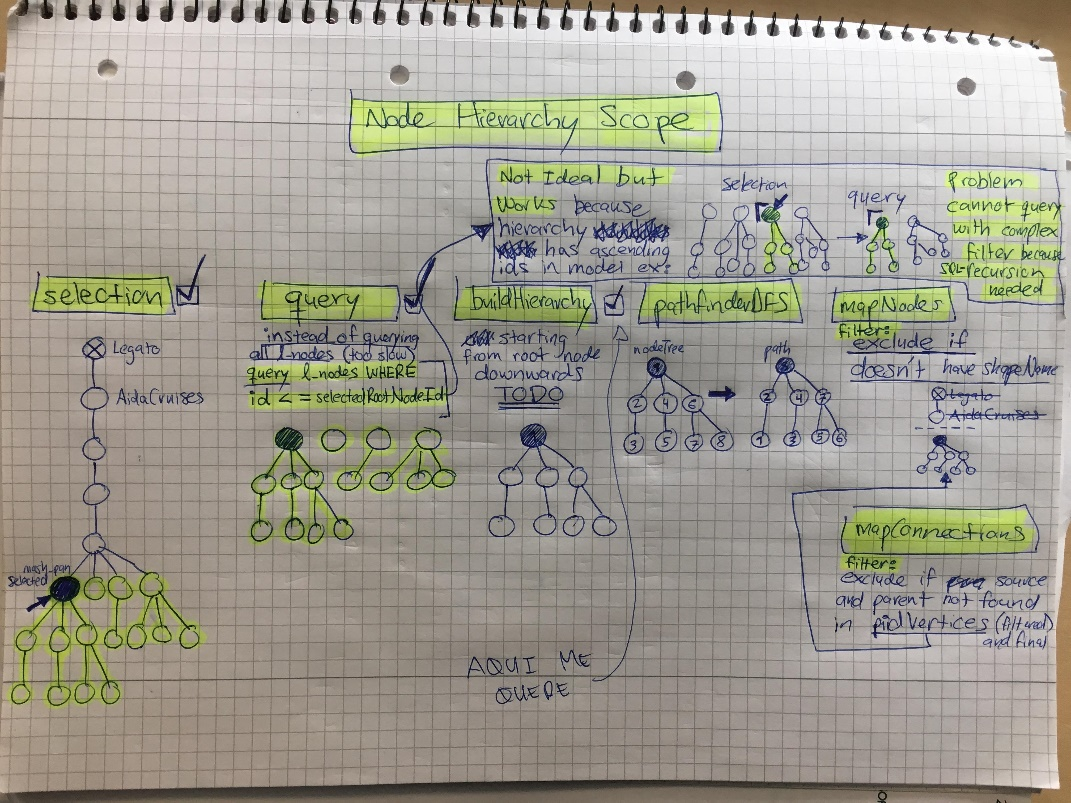 Node Hierarchy Scope
Not Ideal but
Works because
hierarchy
has ascending
ids in model ex:
selection
query
Problem
cannot query
with complex
filter because
SQL-recursion
needed
selection
Legato
AidaCruises
mash-pan
selected
query
instead of querying
all l-nodes (too slow)
query l-nodes WHERE
id <= selectedRootNodeId
buildHierarchy
starting
from root node
downwards
TODO
pathfinderDFS
nodeTree
2 4 6
3 5 7 8
path
2 4 7
1 3 5 6
mapNodes
filter:
exclude if
doesn't have shapeName
Legato
AidaCruises
mapConnections
filter:
exclude if source
and parent not found
in pidVertices (filtered)
and final
AQUI ME
QUEDE